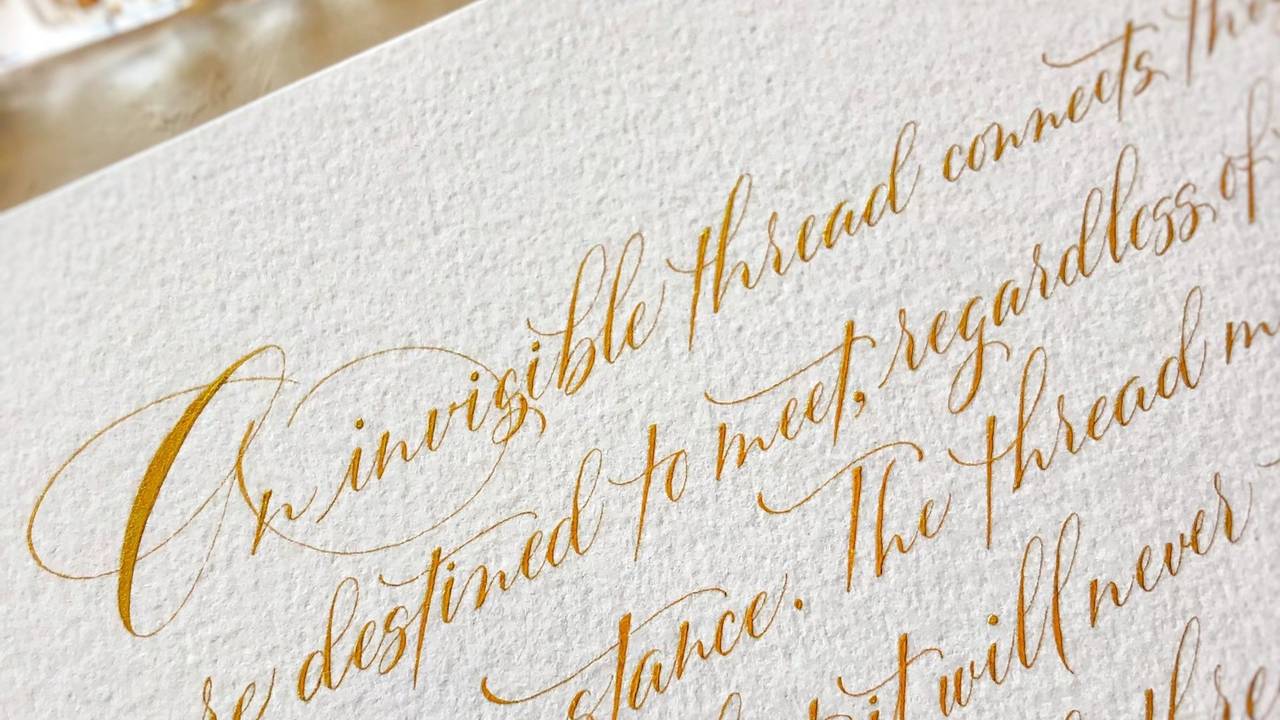 An invisible thread connects tho
re destined to meet, regardless of
stance. The thread m
it will never
thre